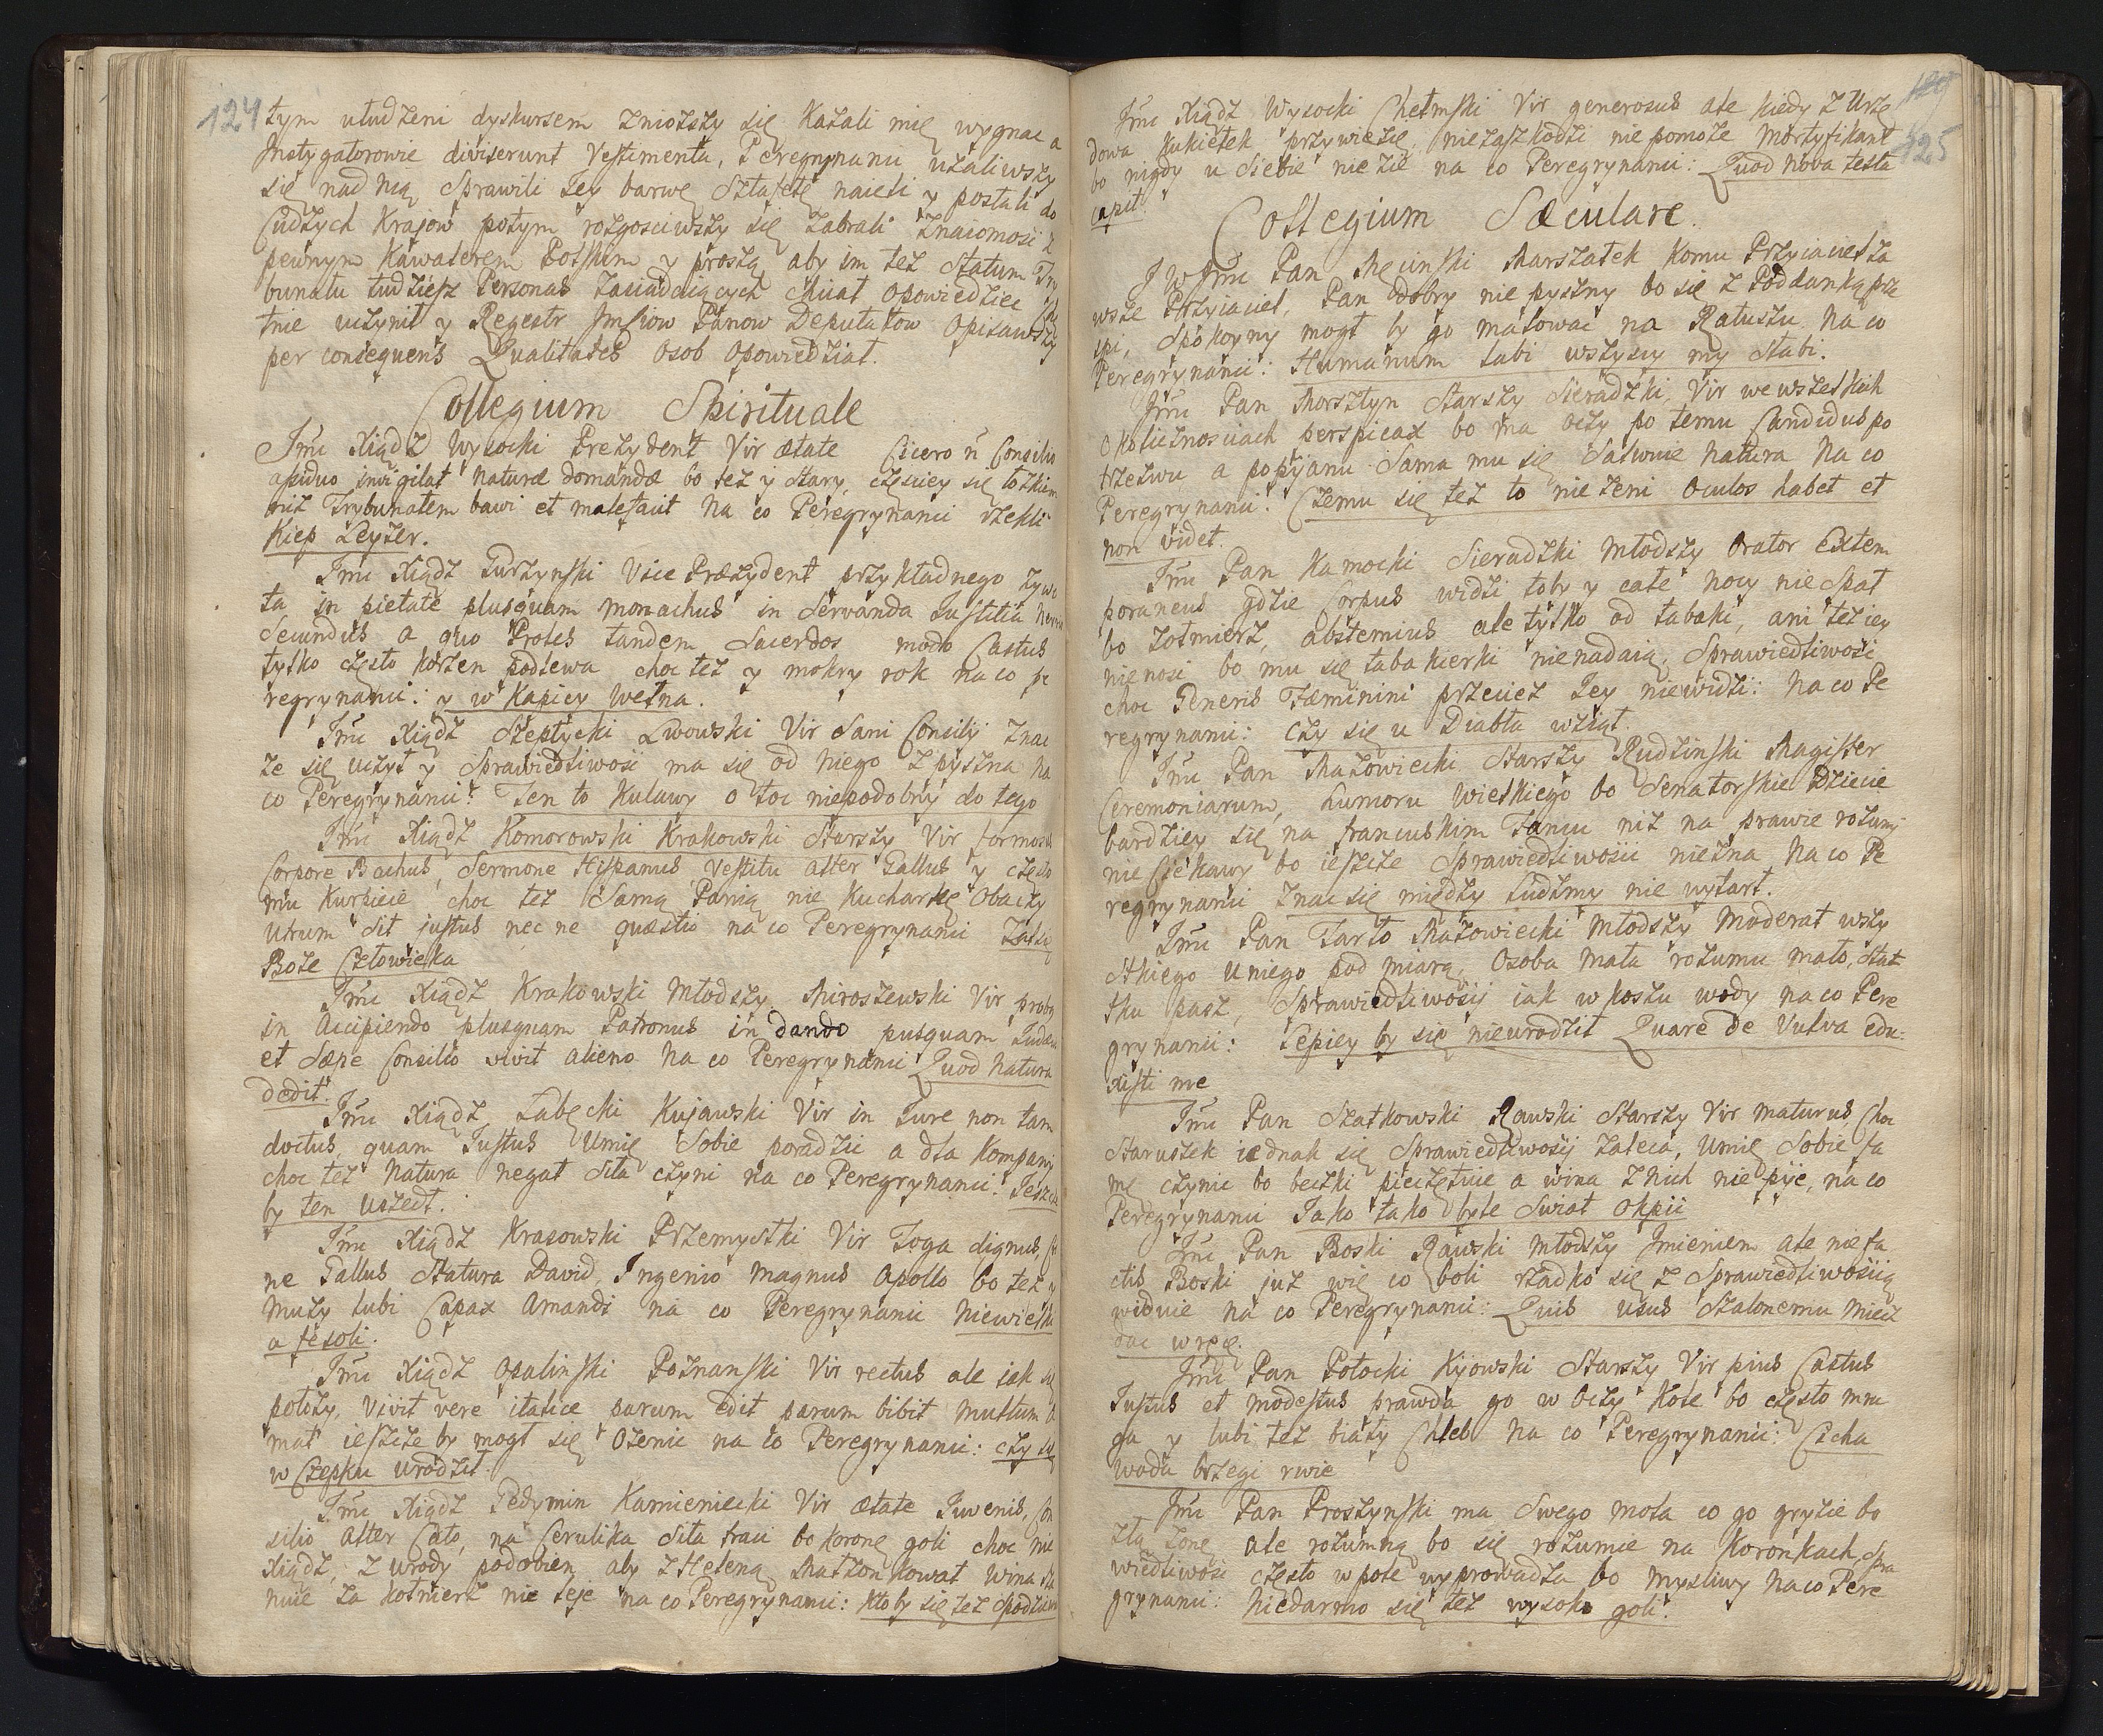 124
tym utudzeni dyskursem zniozszy się kazali mię wygnac a
Instygatorowie diviserunt Vestimenta, Peregrynanci uzaliwszy
się nad nią sprawili Jey barwę Sztafetę naieli y postali do
Cudzych Krajow potym rozgosciwszy się zabrali Znaiomosc z
pewnym Kawalerem Polskim y proszą aby im tez Statum Try
bunatu tudziesz Personas zasiadaiących chciat opowiedziec
tnie uczynit y Regestr Imsciow Panow Deputatow Opisawszy
per consequens Qualitates Osob opowiedziat.
Collegium Spirituale
Imć Xiądz Wysocki Prezydent Vir ætate Cicero n Consilio
assiduo invigilat naturæ domandæ bo tez y stary, częsciey się łozkiem
niz Trybunałem bawi et malesait na co Peregrynanci rzekli
Kiep Leyzer.
Imć Xiądz Turzynski Vice Præzydent przykładnego zywo
ta in pietate plusquam monachus in Servanda Justitia
Secundus a quo Proles tandem Sacerdos modo Castus
tylko często korzen podlewa choc tez y mokry rok na co pe
regrynanci: y w Kapicy Wełna.
Imć Xiądz Szeptycki Lwowski Vir Sani Consilij znac
ze się uczył y Sprawiedliwosc ma się od niego z pyszna na
co Peregrynanci: Ten to Kulawy o toc niepodobny do tego
Imć Xiądz Komorowski Krakowski Starszy Vir formosus
Corpore Bachus, Sermone Hispanus Vestitu alter Gallus y często
mu Kurzicie choc tez Samą Panią nie Kucharkę Obaczy
utrum Sit justus nec ne quæstio na co Peregrynanci
Boze Człowieka
Imć Xiądz Krakowski Młodszy Miroszewski Vir probus
in Accipiendo plusquam Patronus in dando pusquam
et Sæpe Consilio vivit alieno na co Peregrynanci Quod Natura
dedit.
Imć Xiądz Łubęcki Kujawski Vir in Jure non tam
doctus, quam Justus Umie Sobie poradzic a dla Kompany
choc tez Natura negat Siła czyni na co Peregrynanci: Jeszcze
by ten uszedł.
Imć Xiądz Krasowski Przemyslki Vir Toga dignus,
ne Gallus Statura David, Ingenio magnus Apollo bo tez y
Muzy lubi Capax Amandi na co Peregrynanci niewielki
a fesoli.
Imć Xiądz Opalinski Poznanski Vir rectus ale jak się
połozy, vivit vere italice parum edit parum bibit multum
mat ieszcze by mogł się Ozenic na co Peregrynanci: czy się
w Czepku urodził.
Imć Xiądz Gedymin Kamieniecki Vir ætate Juvenis, Con
silio alter Cato, na Cerulika Siła traci bo Koronę goli choc nie
Xiądz, z urody podobien aby z Heleną Małzonkował wina
nue za kołnierz nie leje na co Peregrynanci: Ktoby się tez spodziewał
125
Imć Xiądz Wysocki Chełmski Vir generosus ale kiedy z Urzę
dowa Kukiełek przywiezie, niezaszkodzi niepomoze Mortyfikant
bo nigdy u siebie nie zie na co Peregrynanci: Quod nova testa
capit.
Collegium Sæculare.
J W Imć Pan Męcinski Marszałek Komu Przyiaciel za
wsze Przyiaciel, Pan dobry nie pyszny bo się z Poddanką prze
spi, Spokoyny mogł by go malowac na Ratuszu na co
Peregrynanci: Humanum labi wszyscy my Słabi.
Imć Pan Morsztyn Starszy Sieradzki, Vir we wszelkich
Okolicznosciach perspicax bo ma oczy po temu Candidus po
trzezwu a popijanu Sama mu się Salwuie Natura na co
Peregrynanci: Czemu się tez to nie zeni Oculos habet et
non videt.
Imć Pan Kamocki Sieradzki Młodszy Orator Extem
poraneus gdzie Corpus widzi toby y całe nocy nie Spał
bo zołmierz, abstemius ale tylko od tabaki, ani tez iey
nienosi bo mu się tabakierki nienadaią, Sprawiedliwosc
choc Generis Fæminini przeciez Jey niewidzi: na co Pe
regrynanci: czy się u Diabła wziął.
Imć Pan Mazowiecki Starszy Rudzinski Magister
Ceremoniarum, humoru wielkiego bo Senatorskie Dziecie
bardziey się na francuskim Tancu niz na prawie rozumi
nie Ciekawy bo ieszcze Sprawiedliwosci niezna na co Pe
regrynanci Znac się między Ludzmy nie wytarł.
Imć Pan Tarło Mazowiecki Młodszy Moderat wszy
stkiego u niego pod miarą, Osoba mała rozumu mało, Stat
tku pasz, Sprawiedliwosci jak w koszu wody na co Pere
grynanci: Lepiey by się nieurodził Quare de Vulva edu:
xisti me
Imć Pan Szatkowski Rawski Starszy Vir maturus, Choc
Staruszek iednak się Sprawiedliwosci zaleca, Umie Sobie fa
mę czynic bo beczki pieczętuie a wina z nich nie pije, na co
Peregrynanci Jako tako byle Swiat Okpic
Imć Pan Boski Rawski Młodszy Imieniem ale nie fa
ctis Boski juz wie co boli rzadko się z Sprawiedliwoscią
widuie na co Peregrynanci: Quis usus Szalonemu miecz
dac w ręce.
Imć Pan Potocki Kijowski Starszy Vir pius Castus
Justus et modestus prawda go w Oczy Kole bo często mru
ga y lubi tez biały Chleb na co Peregrynanci: Cicha
woda brzegi rwie
Imć Pan Proszynski ma Swego mola co go gryzie bo
złą zonę ale rozumną bo się rozumie na Koronkach, Spra
wiedliwosc często w pole wyprowadza bo mysliwy na co Pere
grynanci: niedarmo się tez wysoko goli.